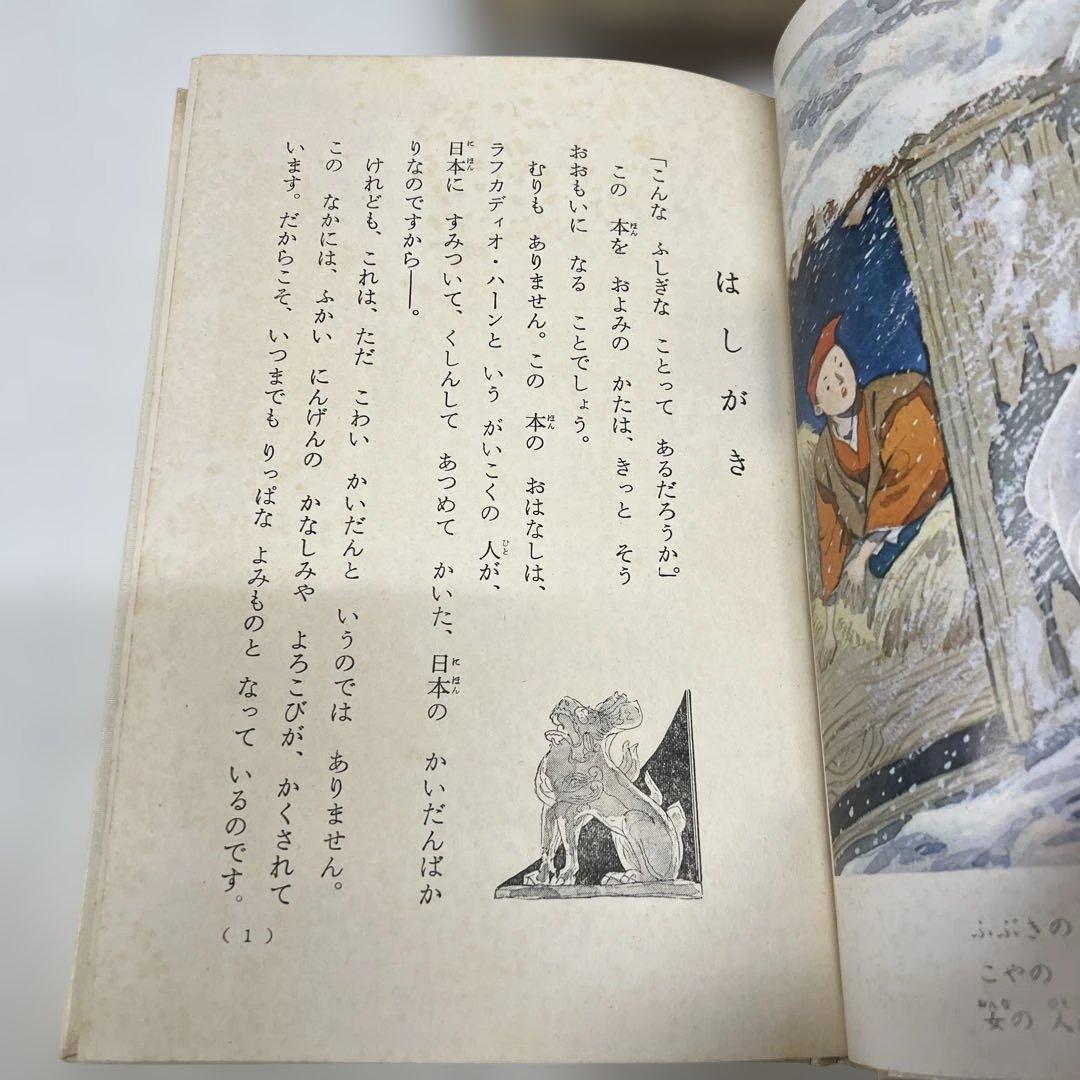 はしがき
「こんな ふしぎな ことって あるだろうか。」
この 本を およみの かたは、きっと そう
おおもいに なる ことでしょう。
むりも ありません。この 本の おはなしは、
ラフカディオ・ハーンと いう がいこくの 人が、
日本に すみついて、くしんして あつめて かいた、日本の かいだんばか
りなのですから――。
けれども、これは、ただ こわい かいだんと いうのでは ありません。
この なかには、ふかい にんげんの かなしみや よろこびが、かくされて
います。だからこそ、いつまでも りっぱな よみものと なって いるのです。
(1)
ふぶきの
こやの
女の 人